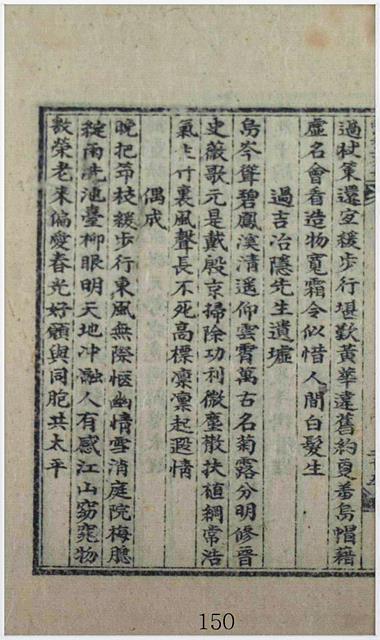 過杖策還宜緩步行堪歎黃華違舊約夏番烏帽藉
虛名會看造物寬霜令似惜人間白髮生
過吉冶隱先生遺墟
烏岑聳碧鳳溪清遙仰雲霄萬古名菊露分明修晉
史薇歌元是戴殷京掃除功利微塵散扶植綱常浩
氣生竹裏風聲長不死高標凜凜起遐情
偶成
晚把笻枝緩步行東風無際愜幽情雪消庭院梅腮
綻雨洗池臺柳眼明天地冲融人有感江山窈窕物
敷榮老來偏愛春光好願與同胞共太平
150